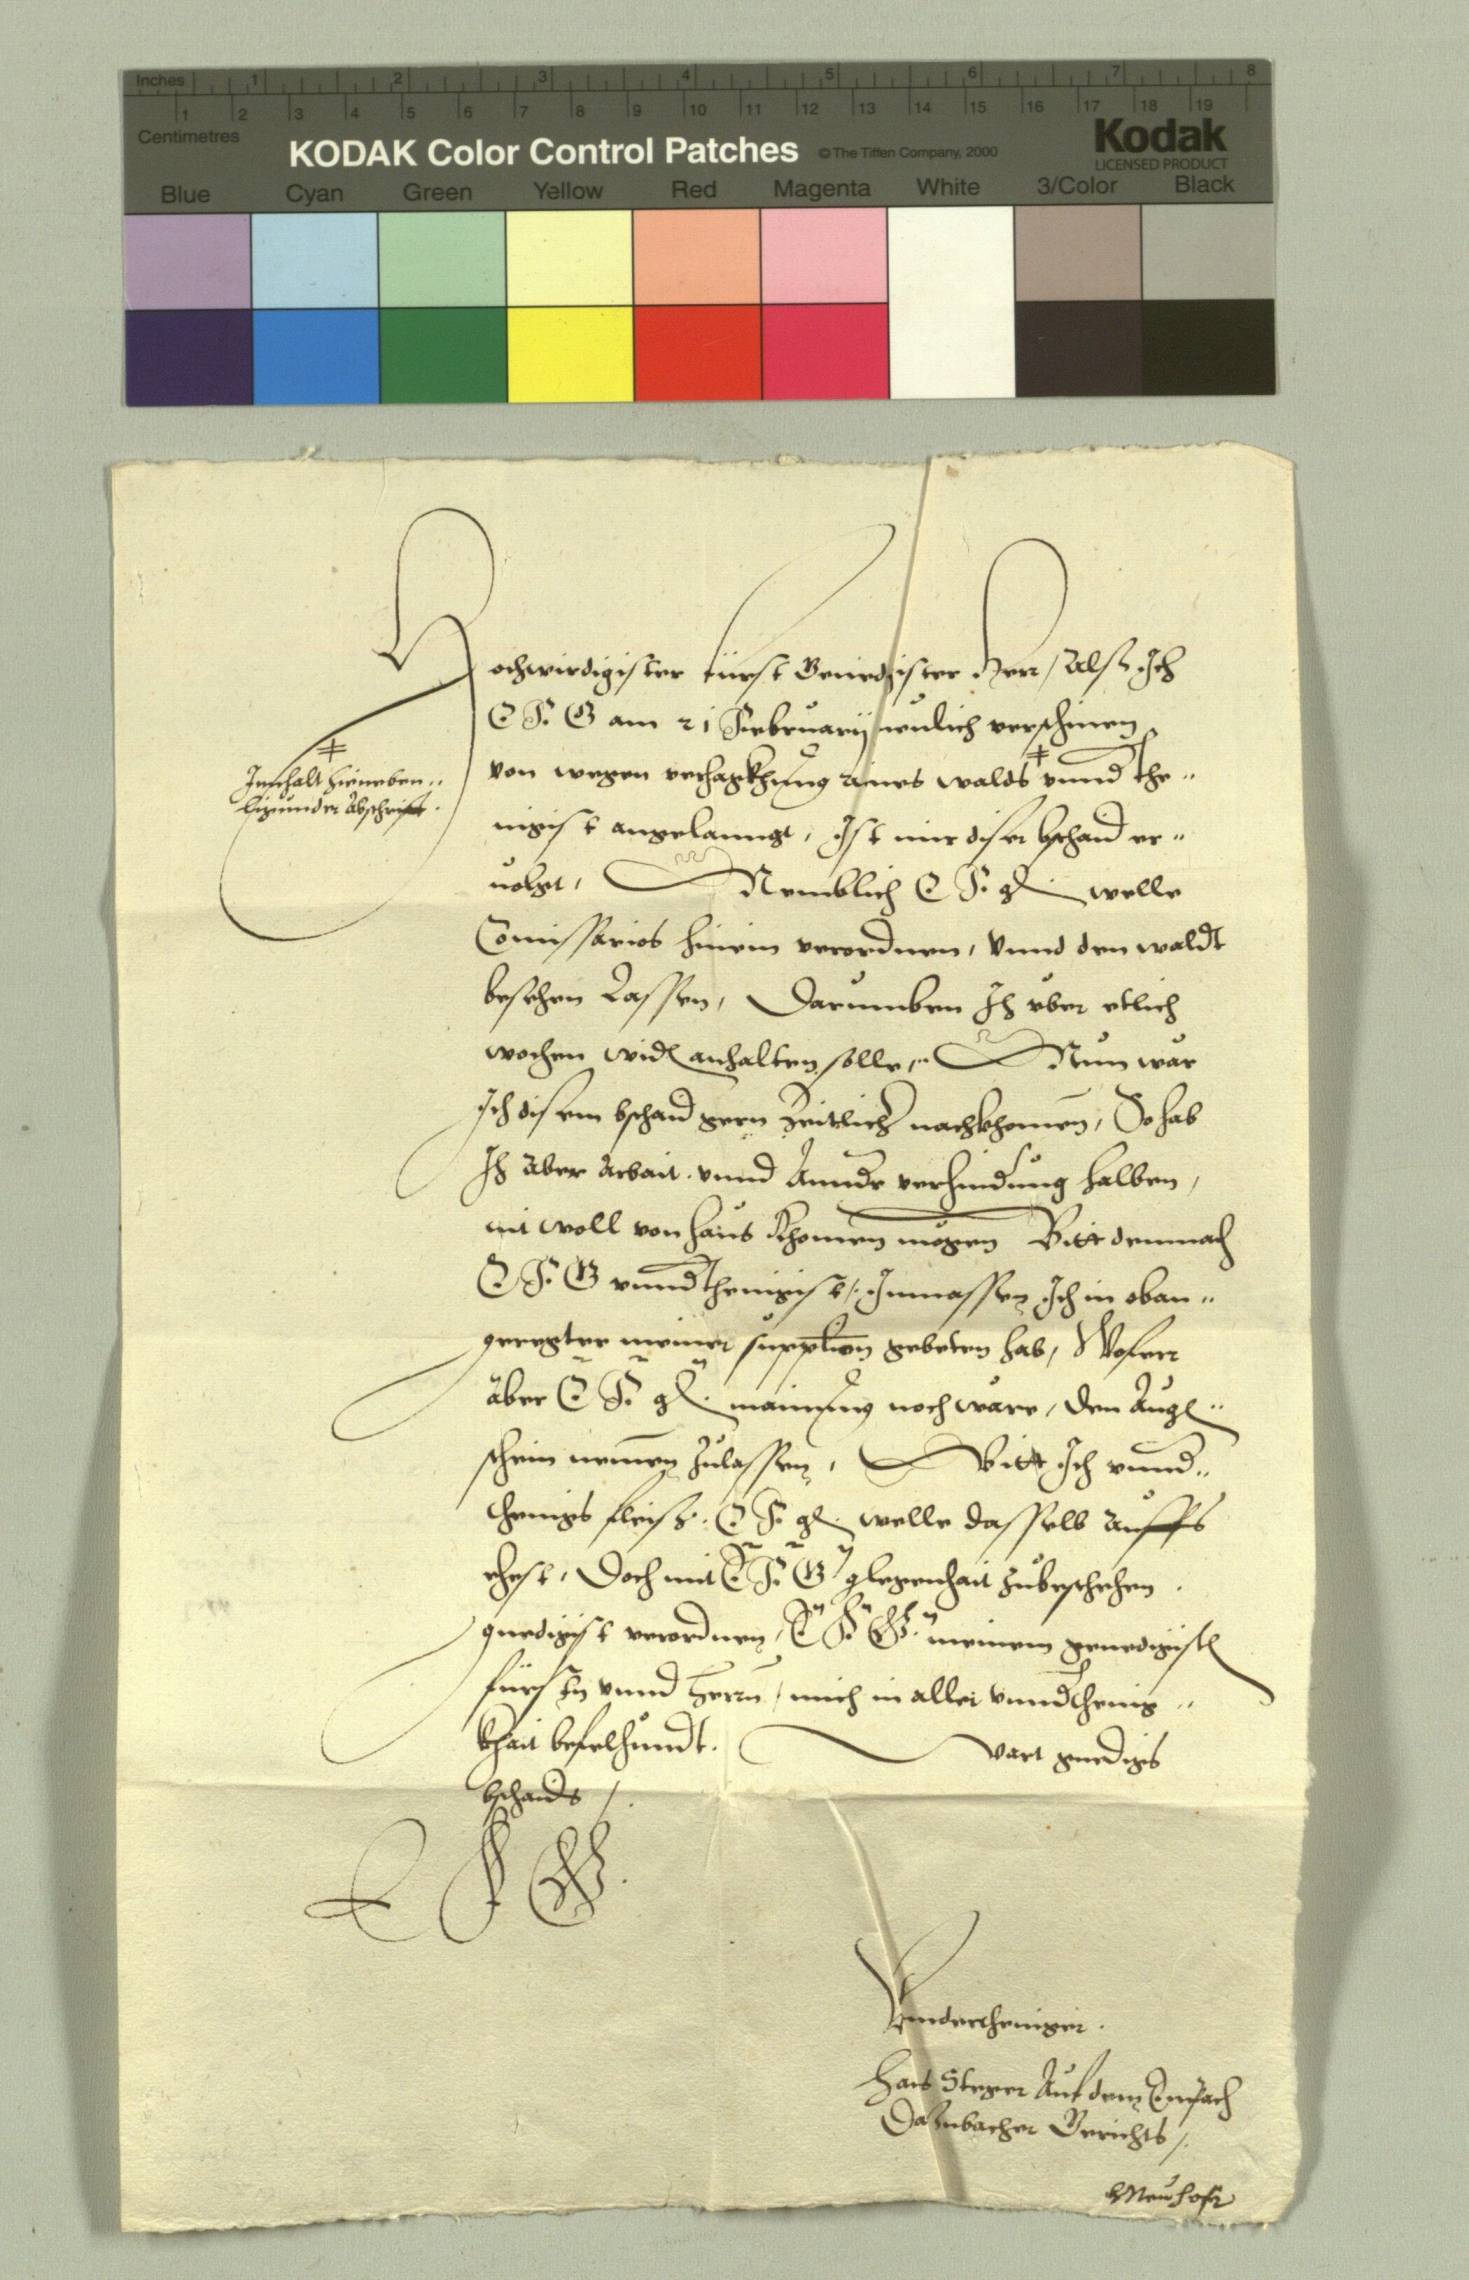 Inches 1 2 3 4 5 6 7 8
1 2 3 4 5 6 7 8 9 10 11 12 13 14 15 16 17 18 19
Centimetres
KODAK Color Control Patches © The Tiffen Company, 2000
Kodak
LICENSED PRODUCT
Blue Cyan Green Yellow Red Magenta White 3/Color Black
Hochwirdigister fürst Genedigister Herr, Alß Ich
E F. G am 21 Februarij neulich verschinen
von wegen verhagkhung aines walds ‡ vnnd the„
‡
Innhalt hieneben„
ligunder Abschrifft.
nigist angelanngt, Ist mir diser bschaid er„
uolgt, Nemblich E F. g welle
Comissarios hinein verordnen, Vnnd den waldt
besehen Lassen, Darumben Ich über etlich
wochen wid anhalten solle„ Nun wär
Ich disem bschaid gern zeitlich nachkhomen, So hab
Ich Aber Arbait vnnd Annde verhindung halben,
nit woll von haus khomen mögen Bitt demnach
E F. G vnndthenigist, Inmassen Ich in oban„
geregter meiner supption gebeten hab, Wofer
aber E F. g mainung noch wäre, den Aug„
schein nemen zulassen, Bitt Ich vnnd„
thenigs fleiß. E F. g welle dasselb auffs
ehest, Doch mit E F. G glegenhait zubeschehen
gnedigist verordnen, E F. G. meinem genedigist
fürstn vnnd Herrn, mich in aller vnndthenig„
khait befelhundt. Wart gnedigs
bschaids /.
E F G.
Vnndertheniger.
Hans Steger Auf dem
Gerichts /.